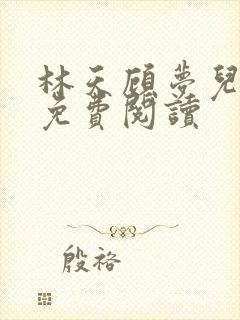 林天顾夢兒
免費閱讀
殷褚